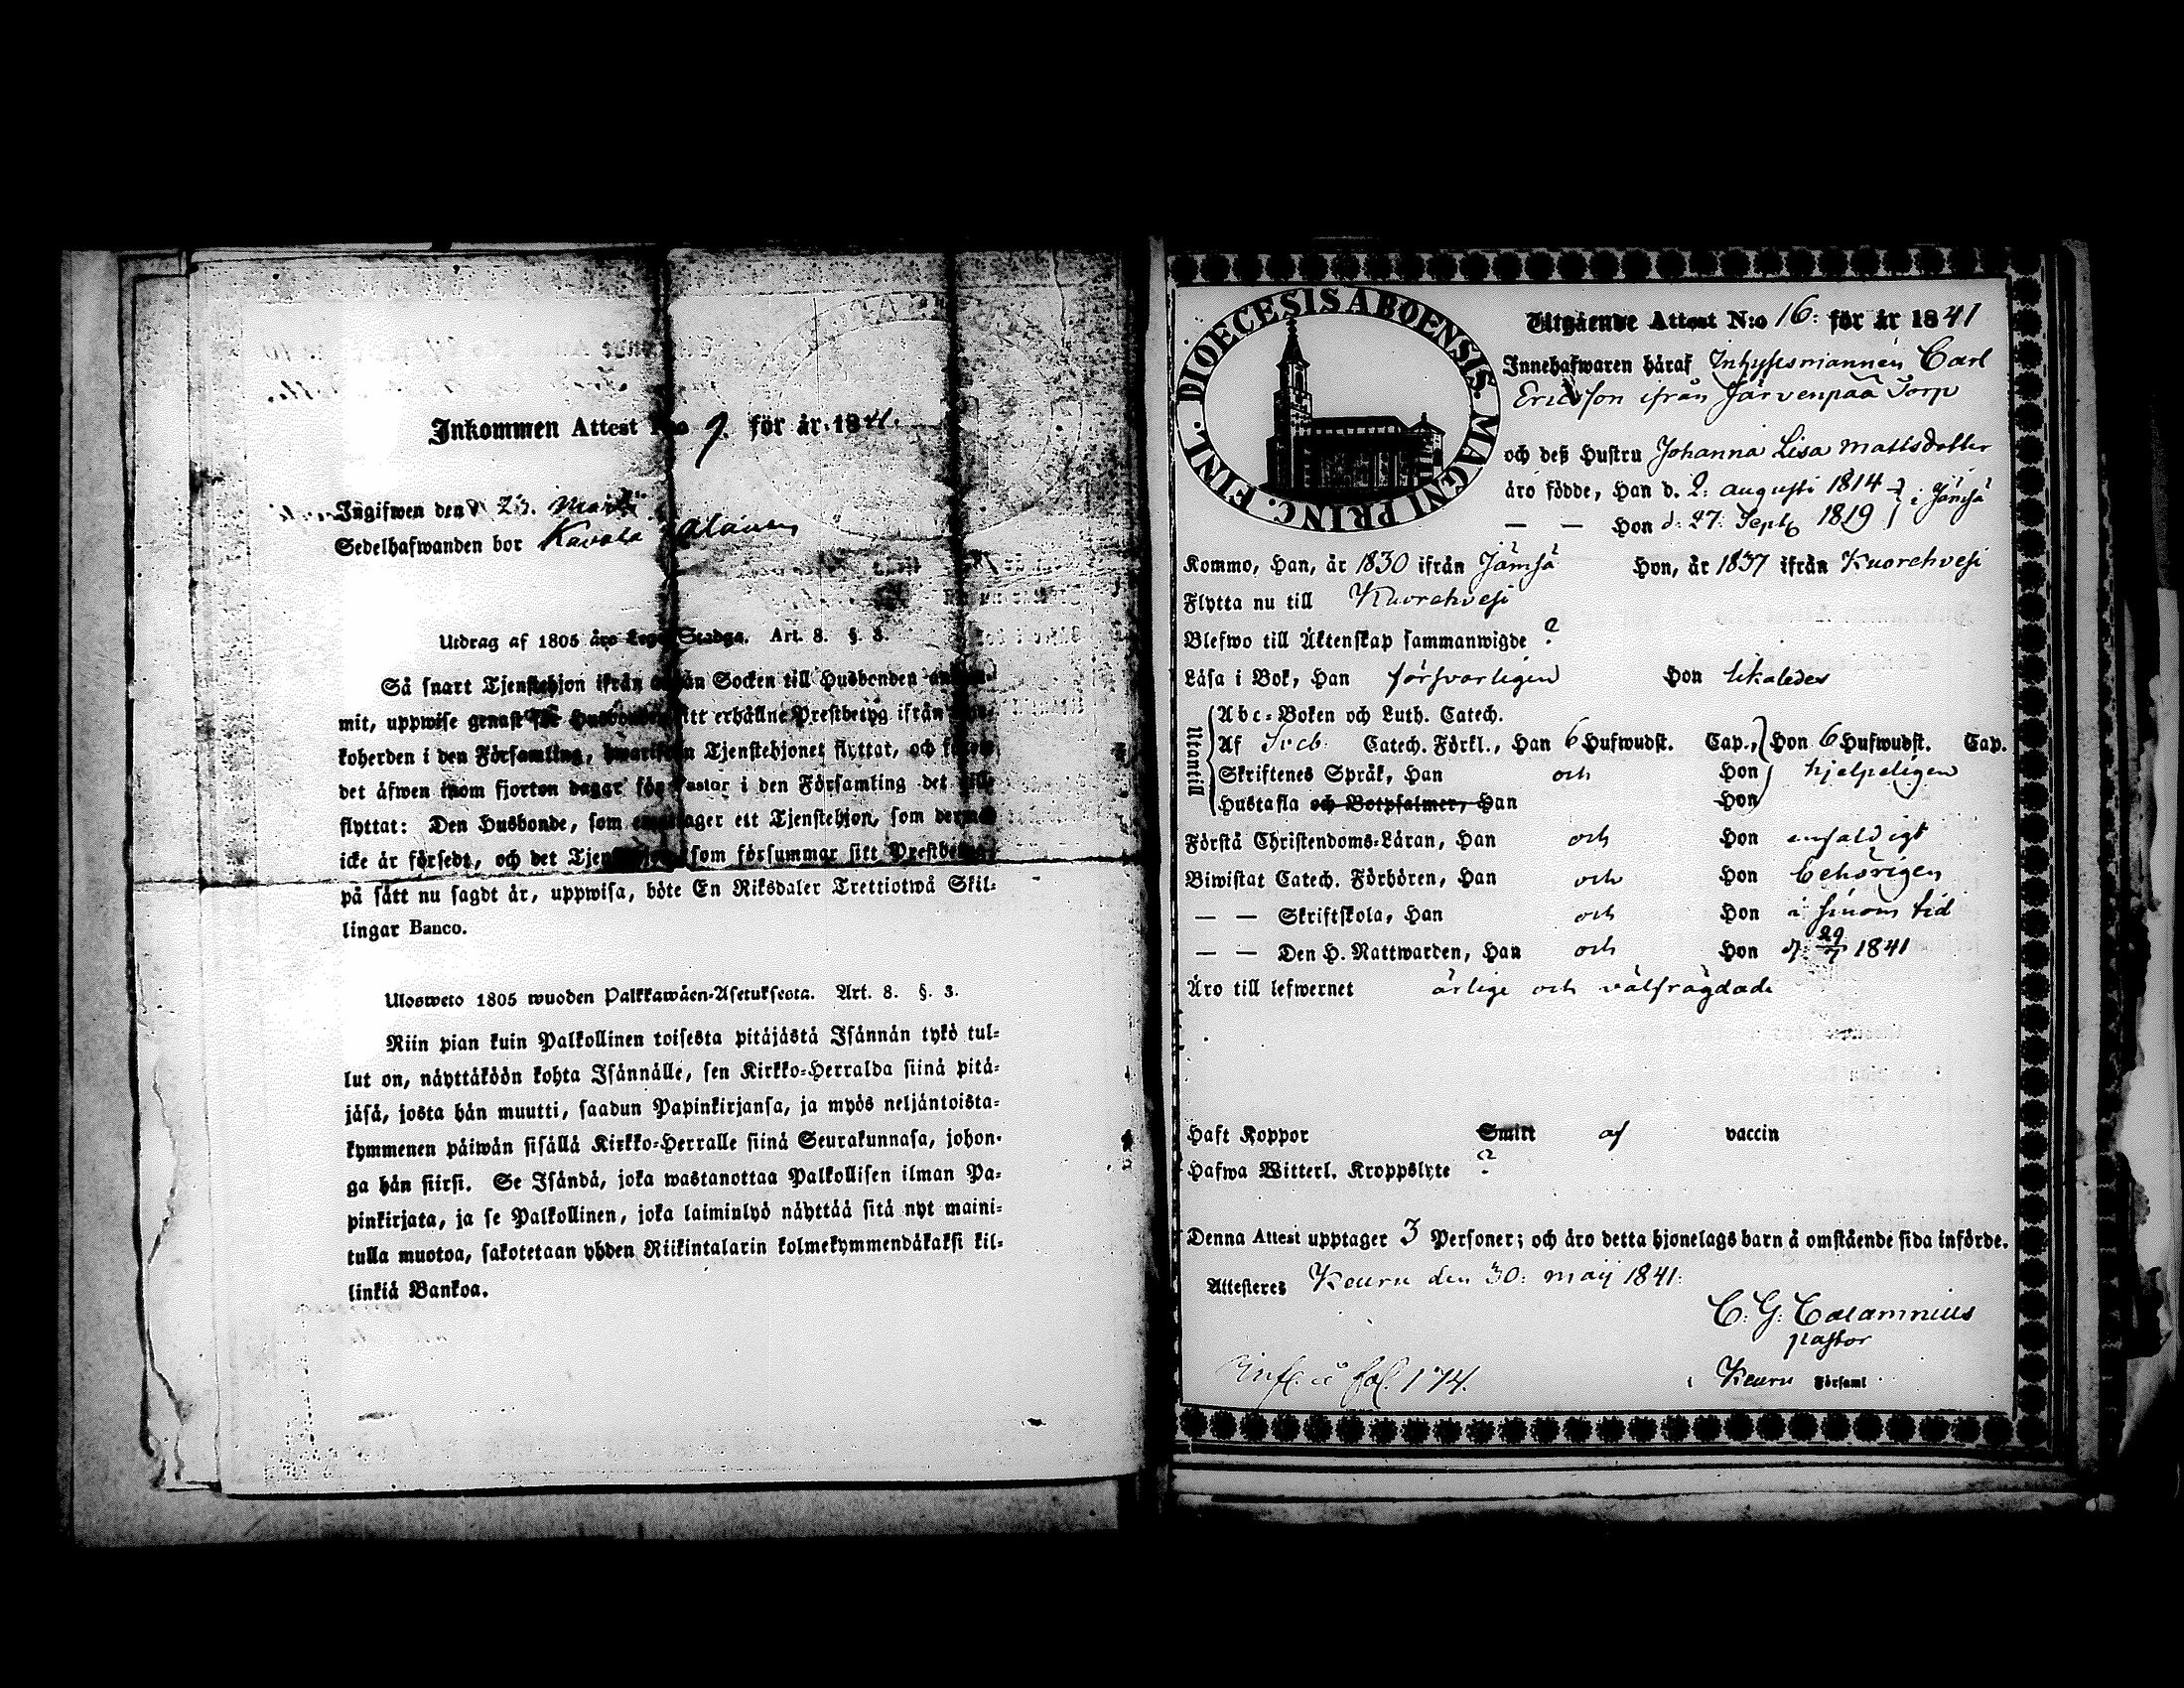 Inkommen Attest N:o 9. för år 1841.
Ingifwen den 23. Martii
Sedelhafwanden bor Kavala
Utdrag af 1805 års Lego Stadga. Art. 8. §. 3.
Så snart Tjenstehjon ifrån annan Socken till Husbonden
mit, uppwise genast för Husbonden sitt erhållne Prestbetyg ifrån
koherden i den Församling, hwarifrån Tjenstehjonet flyttat, och
det äfwen inom fjorton dagar för Pastor i den Församling det
flyttat: Den Husbonde, som emottager ett Tjenstehjon, som dermed
icke är försedt, och det Tjenstehjon, som försummar sitt Prestbetyg,
på sätt nu sagdt är, uppwisa, böte En Riksdaler Trettiotwå Skil-
lingar Banco.
Ulosweto 1805 wuoden Palkkawäen-Asetuksesta. Art. 8. §. 3.
Niin pian kuin Palkollinen toisesta pitäjästä Isännän tykö tul-
lut on, näyttäköön kohta Isännälle, sen Kirkko-Herralda siinä pitä-
jäsä, josta hän muutti, saadun Papinkirjansa, ja myös neljäntoista-
kymmenen päiwän sisällä Kirkko-Herralle siinä Seurakunnasa, johon-
ga hän siirsi. Se Isändä, joka wastanottaa Palkollisen ilman Pa-
pinkirjata, ja se Palkollinen, joka laiminlyö näyttää sitä nyt maini-
tulla muotoa, sakotetaan yhden Riikintalarin kolmekymmendäkaksi kil-
linkiä Bankoa.
DIOECESIS ABOENSIS. MAGNI PRINC. FINL.
Utgående Attest N:o 16. för år 1841
Innehafwaren häraf Inhysesmannen Carl
Ericsson ifrån Järvenpää Torp
och deß Hustru Johanna Lisa Mattsdotter
äro födde, Han d. 2: augusti 1814 } i Jämsä
— — Hon d: 27: Septb 1819
Kommo, Han, år 1830 ifrån Jämsä Hon, år 1837 ifrån Kuorehvesi
Flytta nu till Kuorehvesi
Blefwo till Äktenskap sammanwigde ?
Läsa i Bok, Han försvarligen Hon likaledes
Utantill
Abc-Boken och Luth. Catech.
Af Sveb. Catech. Förkl., Han 6 Hufwudst. Cap., Hon 6 Hufwudst. Cap.
Skriftenes Språk, Han och Hon hjelpeligen
Hustafla och Botpsalmer, Han Hon
Förstå Christendoms-Läran, Han och Hon enfaldigt
Biwistat Catech. Förhören, Han och Hon behörigen
— — Skriftskola, Han och Hon i sinom tid
— — Den H. Nattwarden, Han och Hon 1841
Äro till lefwernet ärlige och välfrägdade
Haft Koppor Smitt af vaccin
Hafwa Witterl. Kroppslyte ?
Denna Attest upptager 3 Personer; och äro detta hjonelags barn å omstående sida införde.
Attesteres Keuru den 30: maij 1841:
C. G. Calamnius
pastor
i Keuru Församl
Infl. å fol. 174.